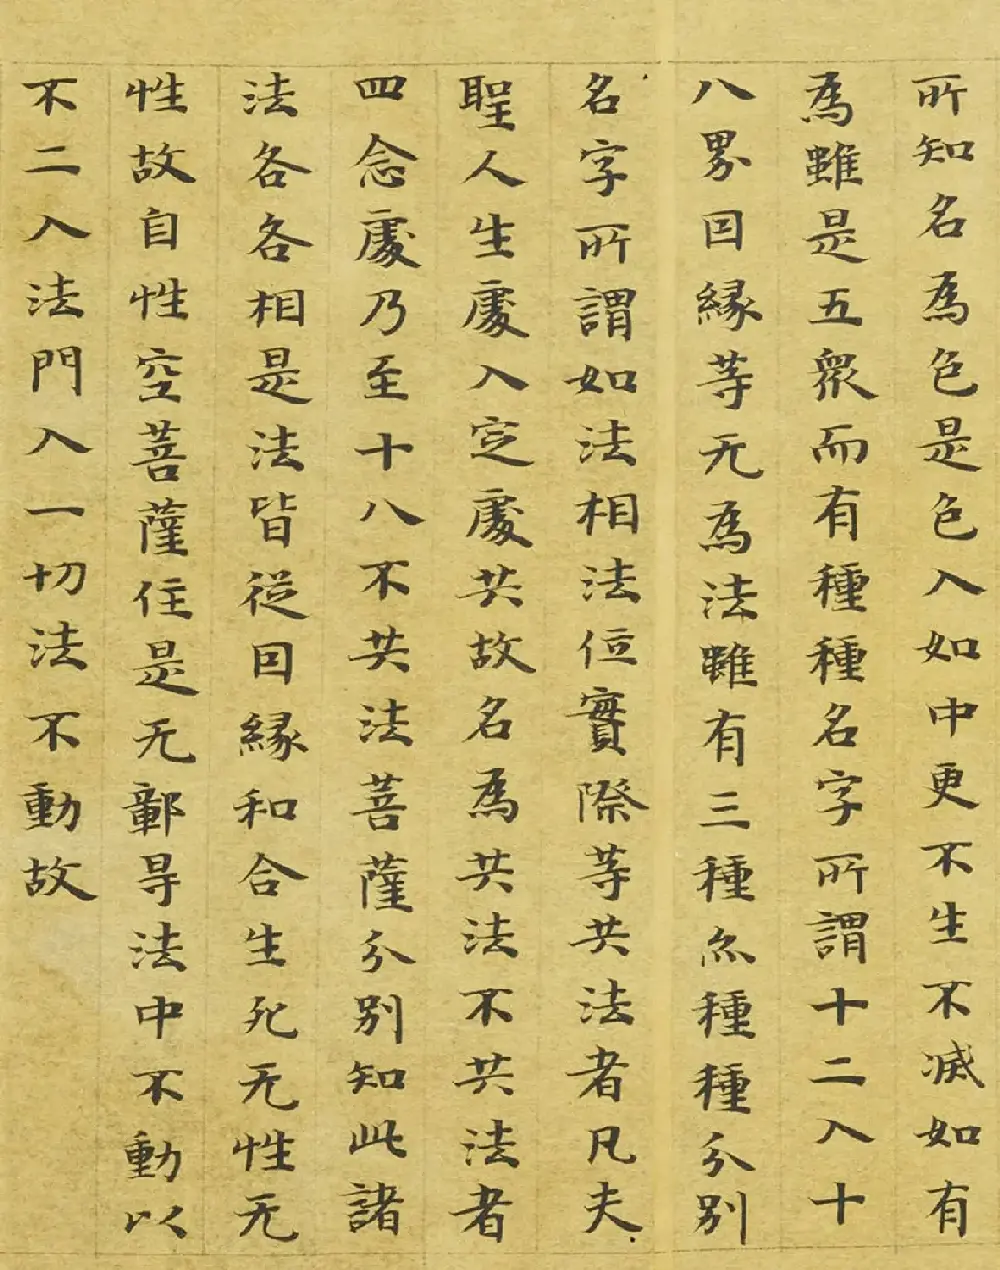 所知名為色是色入如中更不生不滅如有
為雖是五眾而有種種名字所謂十二入十
八界因緣等无為法雖有三種亦種種分別
名字所謂如法相法位實際等共法者凡夫
聖人生處入定處共故名為共法不共法者
四念處乃至十八不共法菩薩分別知此諸
法各各相是法皆從因緣和合生死无性无
性故自性空菩薩住是无鄣㝵法中不動以
不二入法門入一切法不動故